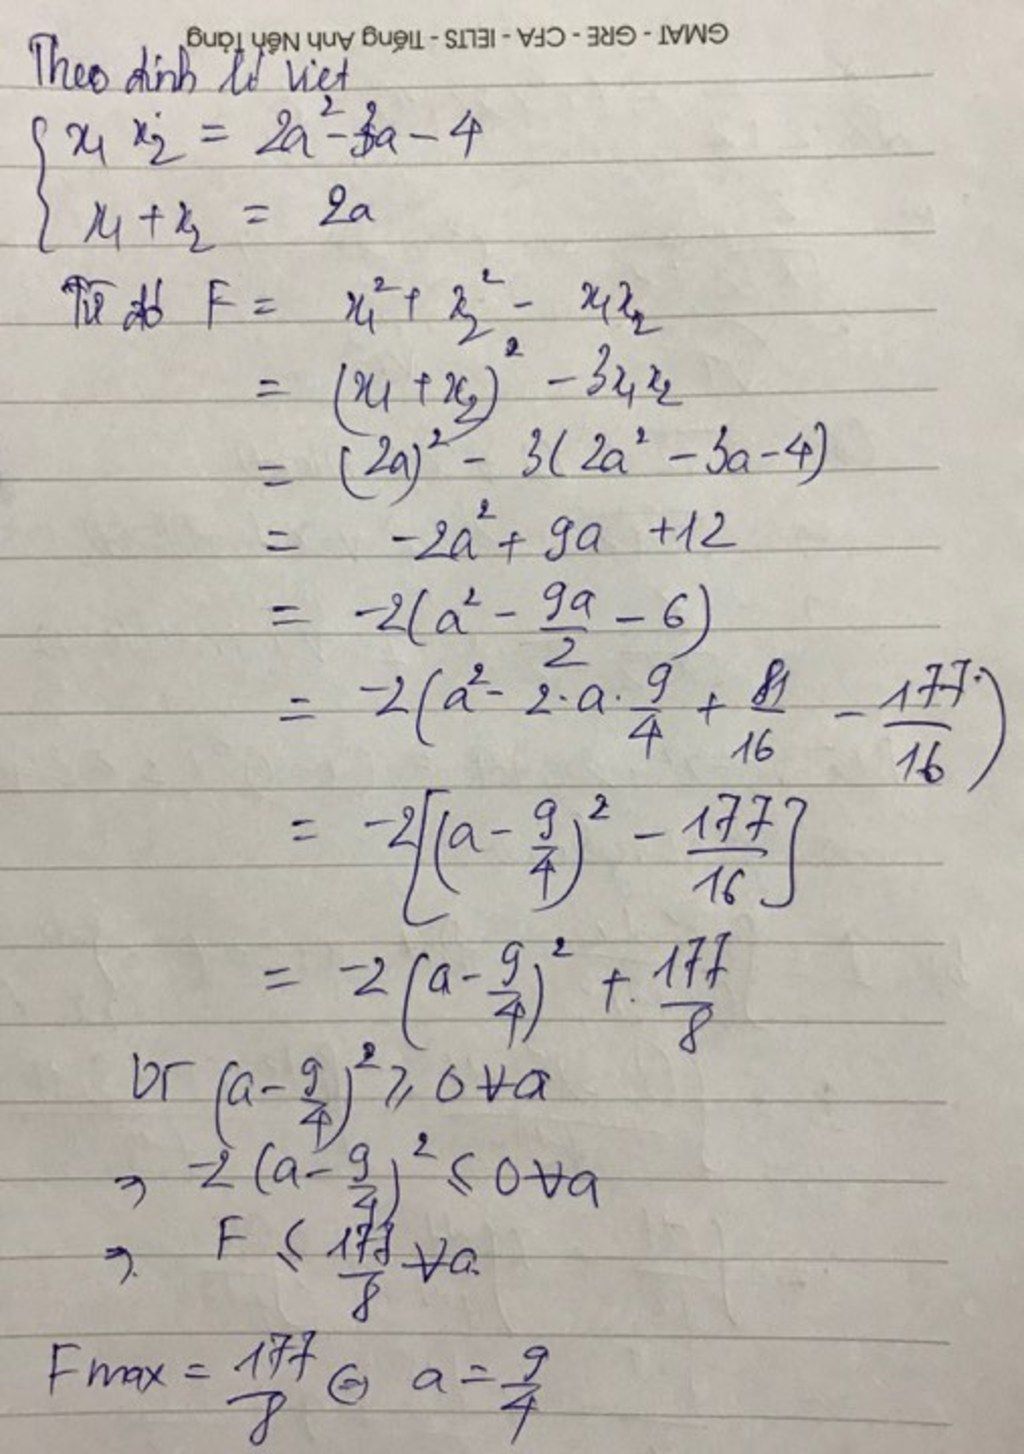 GMAT - GRE - CFA - IELTS - Tiếng Anh Nền Tảng
Theo định lí Viet
{ x₁ x₂ = 2a² - 3a - 4
x₁ + x₂ = 2a
Từ đó F = x₁² + x₂² - x₁x₂
= (x₁ + x₂)² - 3x₁x₂
= (2a)² - 3(2a² - 3a - 4)
= -2a² + 9a + 12
= -2(a² - 9a/2 - 6)
= -2(a² - 2·a·9/4 + 81/16 - 177/16)
= -2[(a - 9/4)² - 177/16]
= -2(a - 9/4)² + 177/8
Vì (a - 9/4)² ≥ 0 ∀a
⇒ -2(a - 9/4)² ≤ 0 ∀a
⇒ F ≤ 177/8 ∀a
Fmax = 177/8 ⇔ a = 9/4